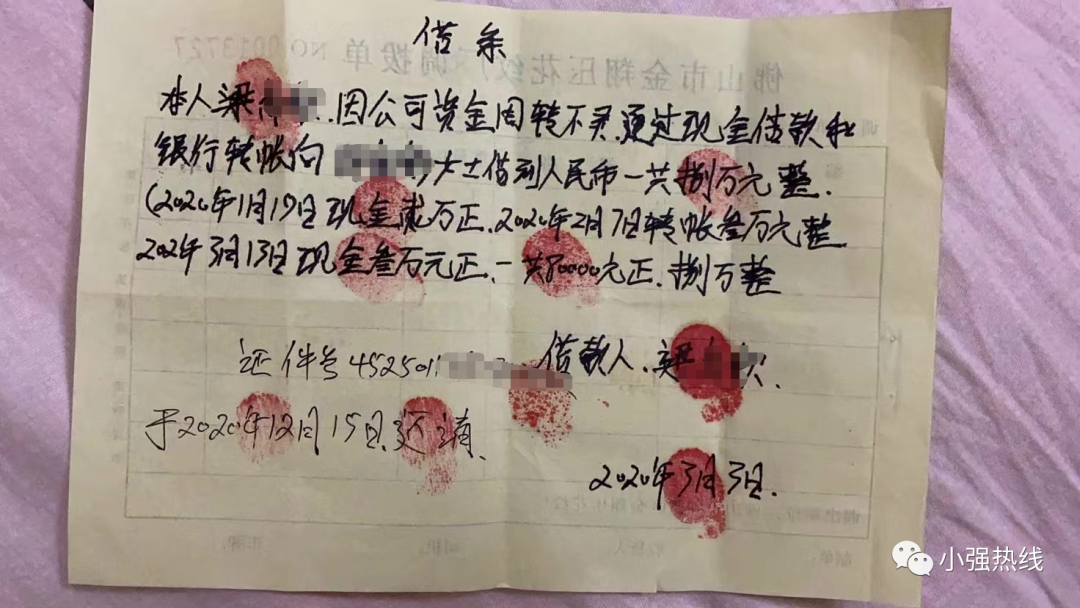 借条
本人梁 因公司资金周转不灵.通过现金借款和
银行转帐向 女士借到人民币一共捌万元整.
(2020年1月19日现金贰万正.2020年2月7日转帐叁万元整
202年3月13日现金叁万元正.一共80000元正.捌万整
证件号4525011 借款人.梁
于2020年12月15日还清.
2020年3月3日.
佛山市金翔压花纹 调拨单 NO.0013727
小强热线